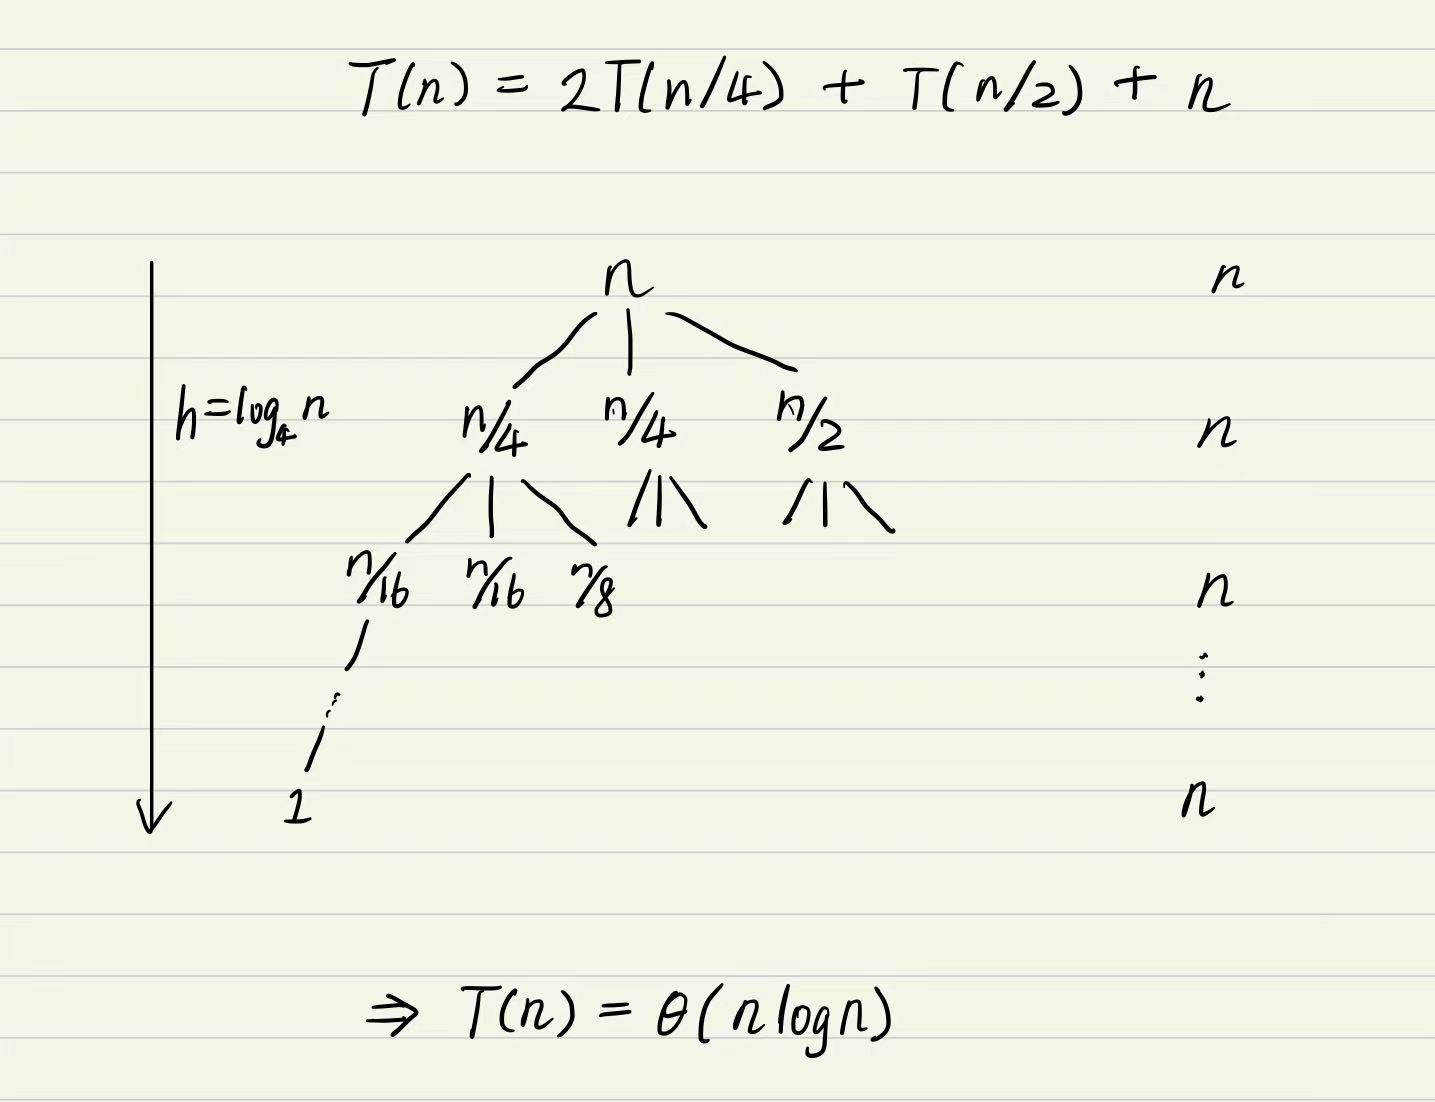 T(n) = 2T(n/4) + T(n/2) + n
n n
h=log₄n n/4 n/4 n/2 n
n/16 n/16 n/8 n
⋮
1 n
⇒ T(n) = θ(nlogn)